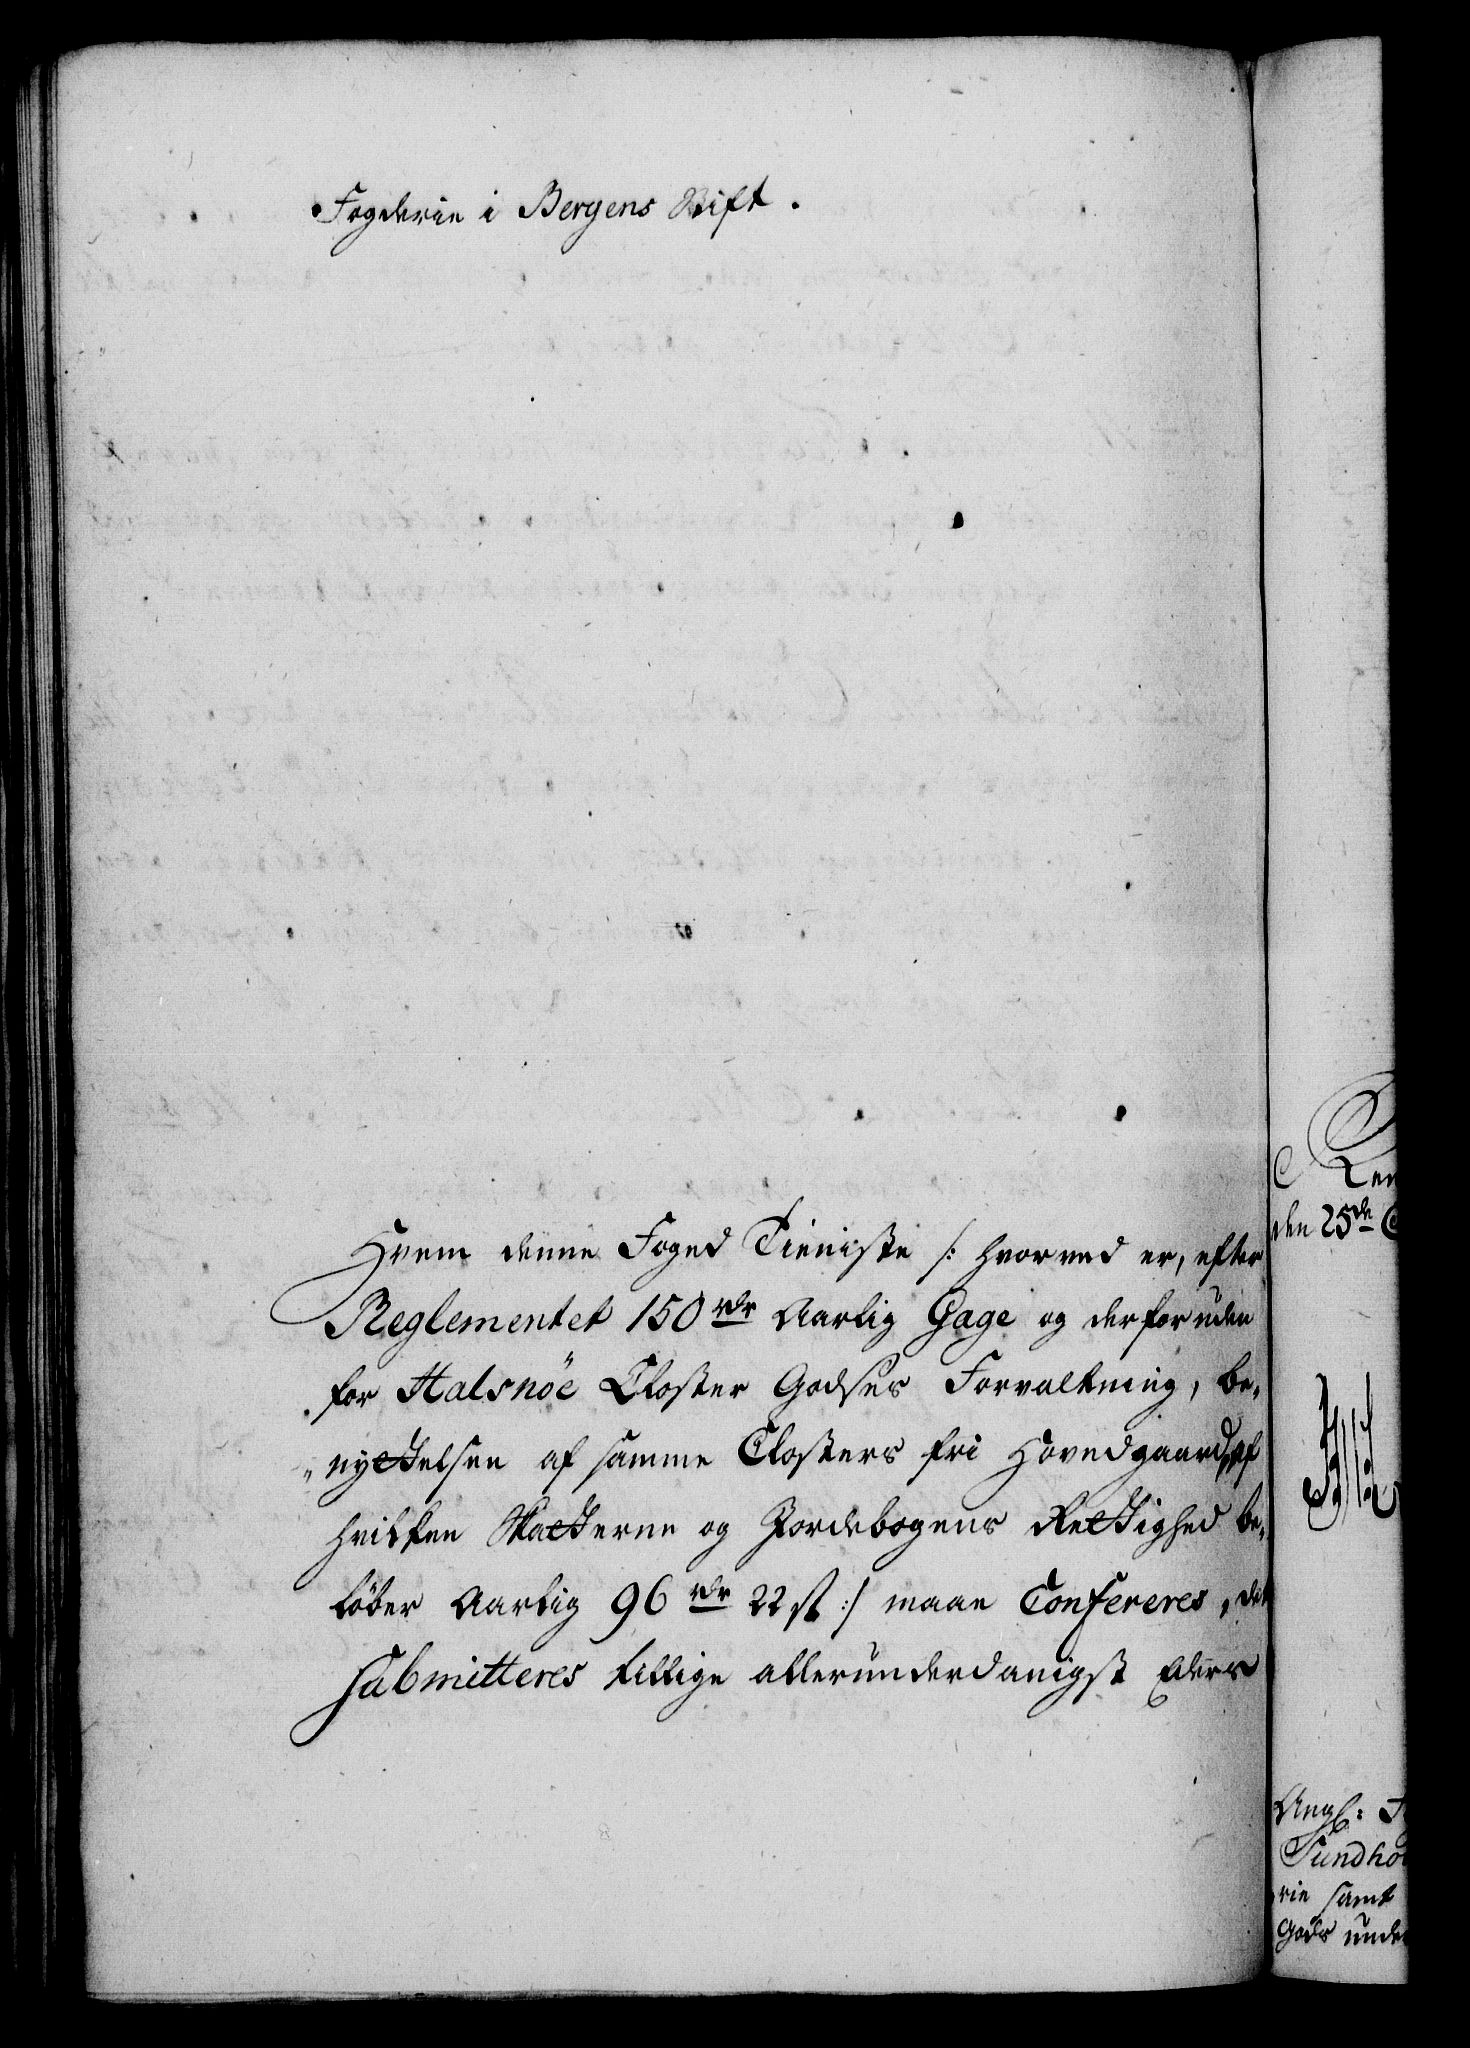 Fogderie i Bergens Stift.
Hvem denne Foged Tieniste /: hvorved er, efter
Reglementet 150 rdr Aarlig Gage og derforuden
for Halsnöe Closter Godses Forvaltning, be-
nyttelsen af samme Closters fri Hovedgaard, af
hvilken Skatterne og Jordebogens Rettighed be-
löber Aarlig 96 rdr 22 ß :/ maae Confereres, det
submitteres tillige allerunderdanigst Eders
den 25de
Sundho
rie samt
Gods unde